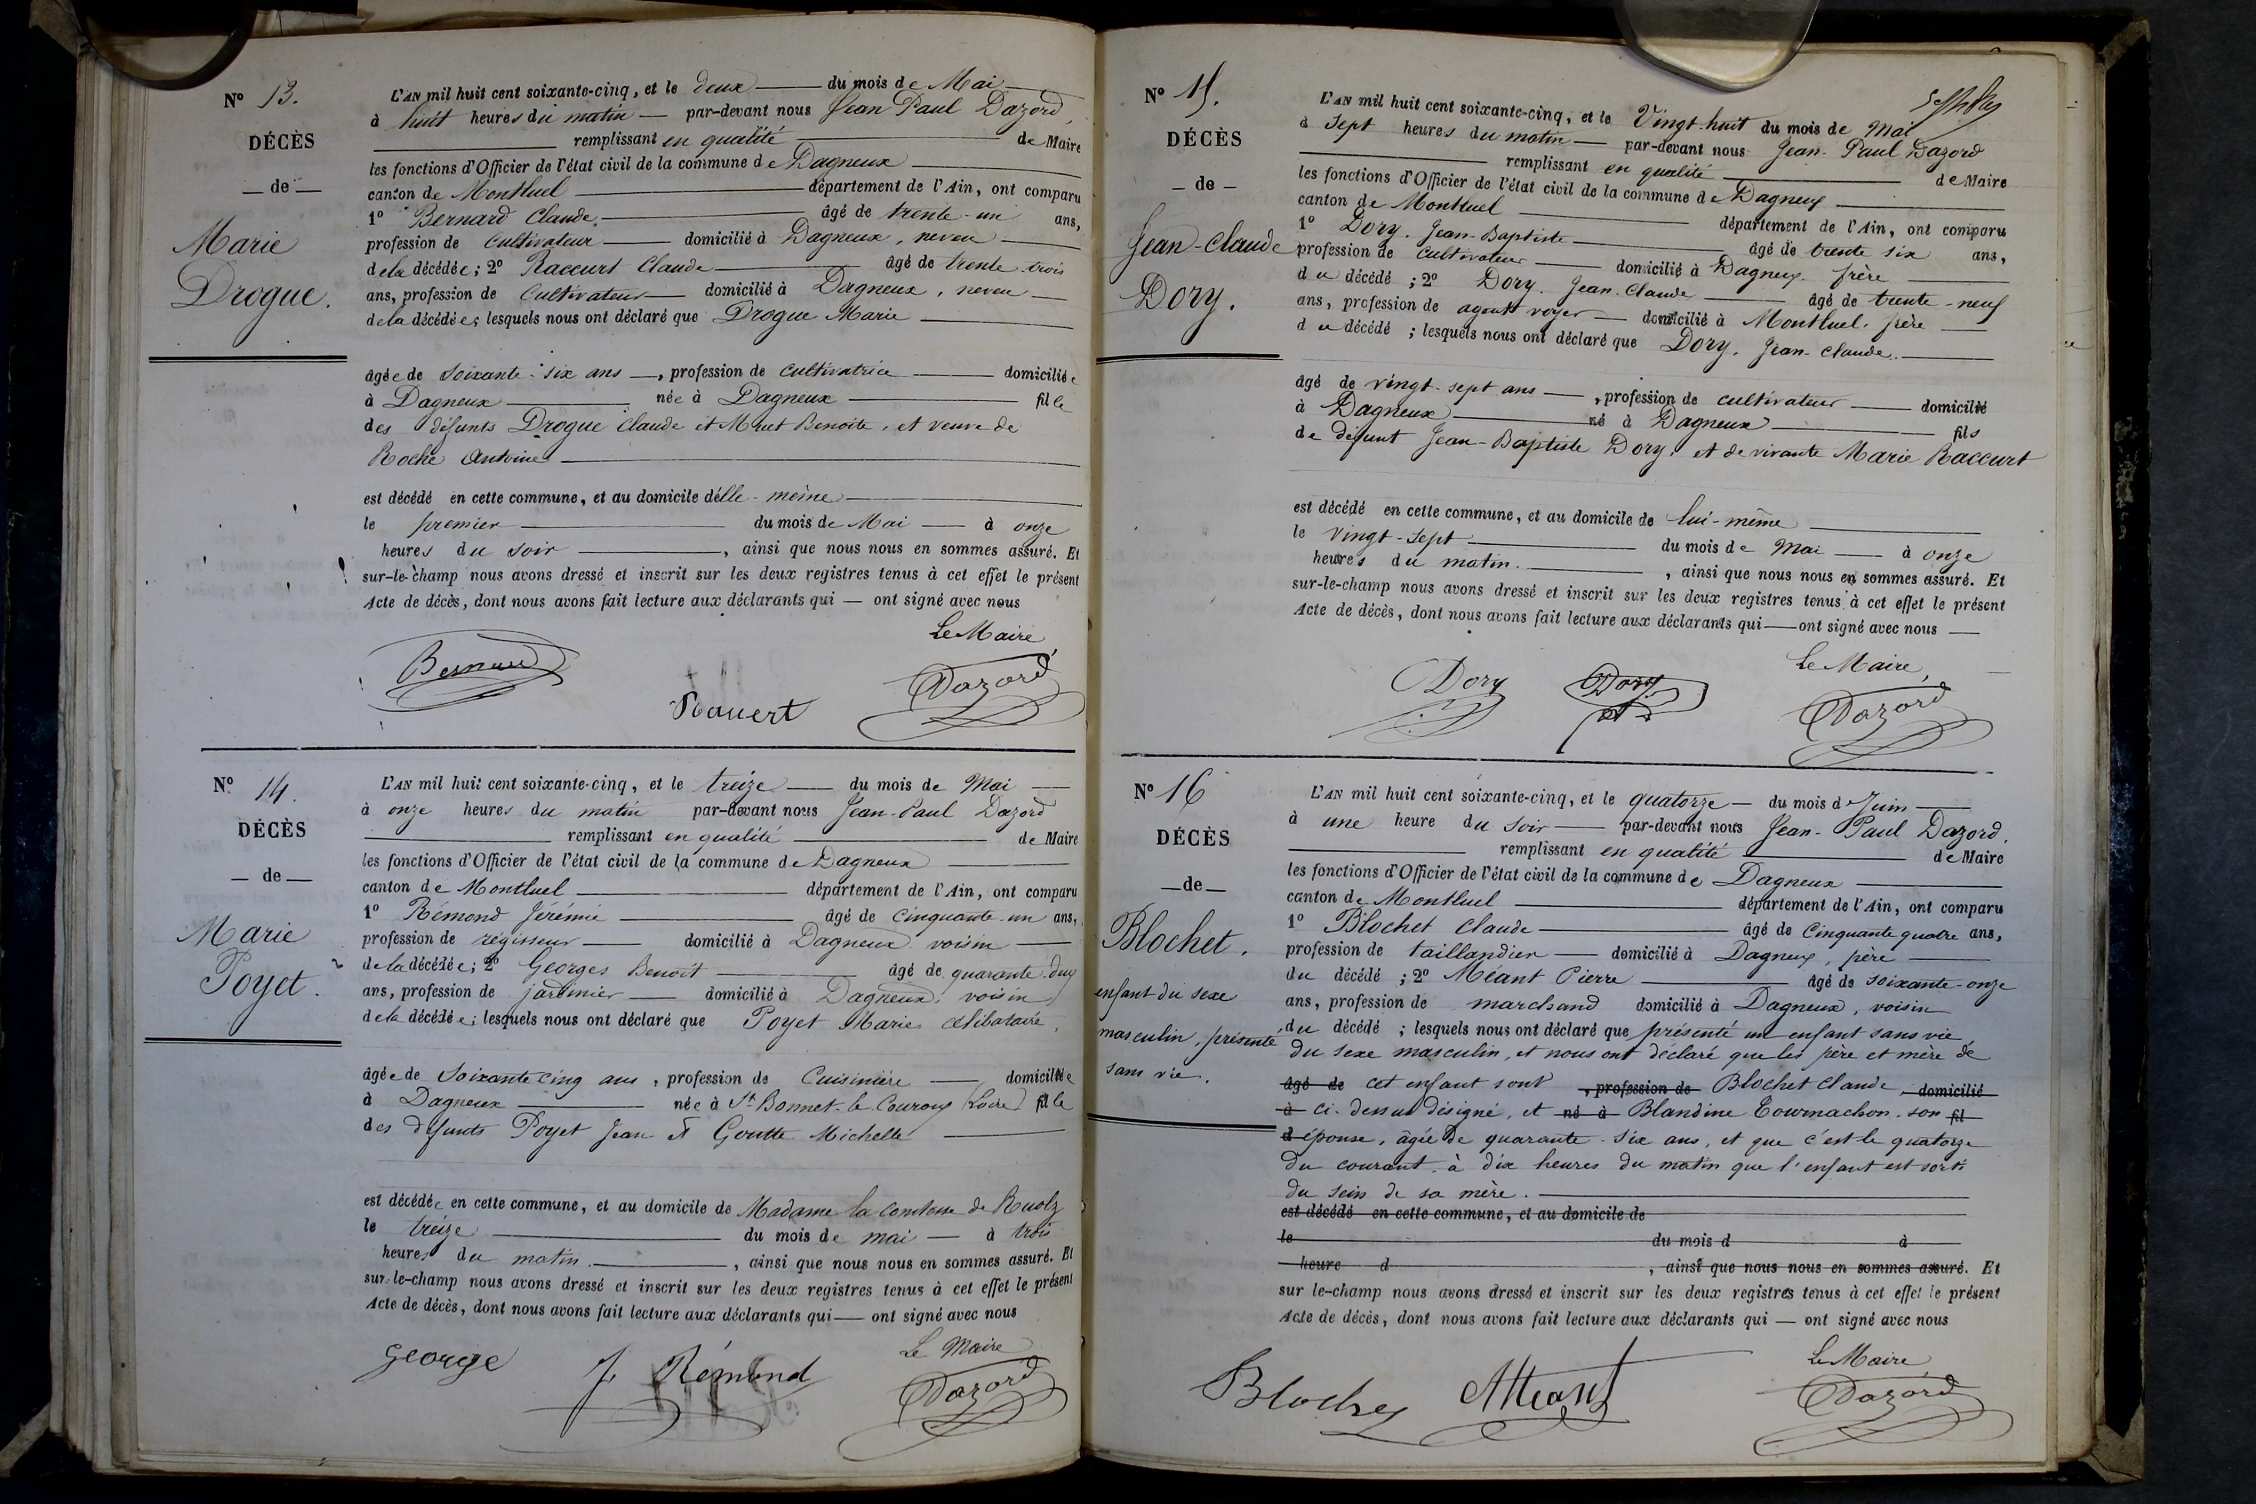 Nº 13.
DÉCÈS
— de —
Marie
Drogue.
L'AN mil huit cent soixante-cinq, et le deux — du mois de Mai —
à huit heures du matin — par-devant nous Jean Paul Dazord,
— remplissant en qualité — de Maire
les fonctions d'Officier de l'état civil de la commune de Dagneux —
canton de Montluel — département de l'Ain, ont comparu
1º Bernard Claude — âgé de trente-un ans,
profession de cultivateur — domicilié à Dagneux, neveu —
de la décédée; 2º Raccurt Claude — âgé de trente trois
ans, profession de Cultivateur — domicilié à Dagneux, neveu —
de la décédée; lesquels nous ont déclaré que Drogue Marie —
âgée de soixante-six ans —, profession de cultivatrice — domiciliée
à Dagneux — née à Dagneux — fille
des défunts Drogue Claude et Muet Benoite, et veuve de
Roche Antoine —
est décédé en cette commune, et au domicile d'elle-même —
le premier — du mois de Mai — à onze
heures du soir —, ainsi que nous nous en sommes assuré. Et
sur-le-champ nous avons dressé et inscrit sur les deux registres tenus à cet effet le présent
Acte de décès, dont nous avons fait lecture aux déclarants qui — ont signé avec nous
Le Maire
Bernard
Dazord
Nº 14.
DÉCÈS
— de —
Marie
Poyet.
L'AN mil huit cent soixante-cinq, et le treize — du mois de Mai —
à onze heures du matin par-devant nous Jean-Paul Dazord
— remplissant en qualité — de Maire
les fonctions d'Officier de l'état civil de la commune de Dagneux —
canton de Montluel — département de l'Ain, ont comparu
1º Rémond Jérémie — âgé de cinquante-un ans,
profession de régisseur — domicilié à Dagneux voisin —
de la décédée; 2º Georges Benoit — âgé de quarante-deux
ans, profession de jardinier — domicilié à Dagneux, voisin
de la décédée; lesquels nous ont déclaré que Poyet Marie célibataire,
âgée de soixante cinq ans, profession de Cuisinière — domiciliée
à Dagneux — née à St. Bonnet-le-Couroux (Loire) fille
des défunts Poyet Jean et Goutte Michelle —
est décédée en cette commune, et au domicile de Madame la Comtesse de Ruolz
le treize — du mois de mai — à trois
heures du matin —, ainsi que nous nous en sommes assuré. Et
sur-le-champ nous avons dressé et inscrit sur les deux registres tenus à cet effet le présent
Acte de décès, dont nous avons fait lecture aux déclarants qui — ont signé avec nous
Le Maire
George
J. Rémond
Dazord
Nº 15.
DÉCÈS
— de —
Jean-Claude
Dory.
L'AN mil huit cent soixante-cinq, et le Vingt-huit du mois de Mai
à sept heures du matin — par-devant nous Jean-Paul Dazord
— remplissant en qualité — de Maire
les fonctions d'Officier de l'état civil de la commune de Dagneux —
canton de Montluel — département de l'Ain, ont comparu
1º Dory. Jean-Baptiste — âgé de trente six ans,
profession de cultivateur — domicilié à Dagneux frère —
du décédé; 2º Dory. Jean-Claude — âgé de trente-neuf
ans, profession de agent voyer — domicilié à Montluel, frère —
du décédé; lesquels nous ont déclaré que Dory. Jean-Claude. —
âgé de vingt-sept ans —, profession de cultivateur — domicilié
à Dagneux — né à Dagneux — fils
de défunt Jean-Baptiste Dory. et de vivante Marie Raccurt
est décédé en cette commune, et au domicile de lui-même —
le vingt-sept — du mois de Mai — à onze
heures du matin. —, ainsi que nous nous en sommes assuré. Et
sur-le-champ nous avons dressé et inscrit sur les deux registres tenus à cet effet le présent
Acte de décès, dont nous avons fait lecture aux déclarants qui — ont signé avec nous —
Le Maire,
Dory
Dory
Dazord
Nº 16
DÉCÈS
— de —
Blochet.
enfant du sexe
masculin, présenté
sans vie.
L'AN mil huit cent soixante-cinq, et le quatorze — du mois de Juin —
à une heure du soir — par-devant nous Jean-Paul Dazord,
— remplissant en qualité — de Maire
les fonctions d'Officier de l'état civil de la commune de Dagneux —
canton de Montluel — département de l'Ain, ont comparu
1º Blochet Claude — âgé de cinquante quatre ans,
profession de taillandier — domicilié à Dagneux, père —
du décédé; 2º Méant Pierre — âgé de soixante-onze
ans, profession de marchand domicilié à Dagneux, voisin
du décédé; lesquels nous ont déclaré que présenté un enfant sans vie,
du sexe masculin, et nous ont déclaré que les père et mère de
âgé de cet enfant sont , profession de Blochet Claude, domicilié
à ci-dessus désigné, et né à Blandine Tournachon. son fil
d épouse, âgée de quarante-six ans, et que c'est le quatorze
du courant à dix heures du matin que l'enfant est sorti
du sein de sa mère. —
est décédé en cette commune, et au domicile de
le du mois d à
heure d , ainsi que nous nous en sommes assuré. Et
sur-le-champ nous avons dressé et inscrit sur les deux registres tenus à cet effet le présent
Acte de décès, dont nous avons fait lecture aux déclarants qui — ont signé avec nous
Le Maire
Blochet
Méant
Dazord